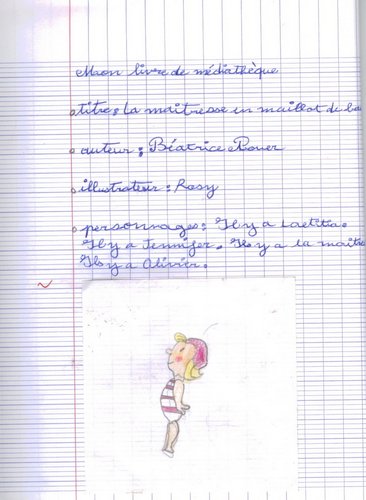 Mon livre de médiathèque
titre: La maitresse en maillot de ba
auteur: Béatrice Rouer
illustrateur: Rosy
personnages: Il y a Laetitia.
Il y a Jennifer. Il y a la maitre
Il y a Olivier.